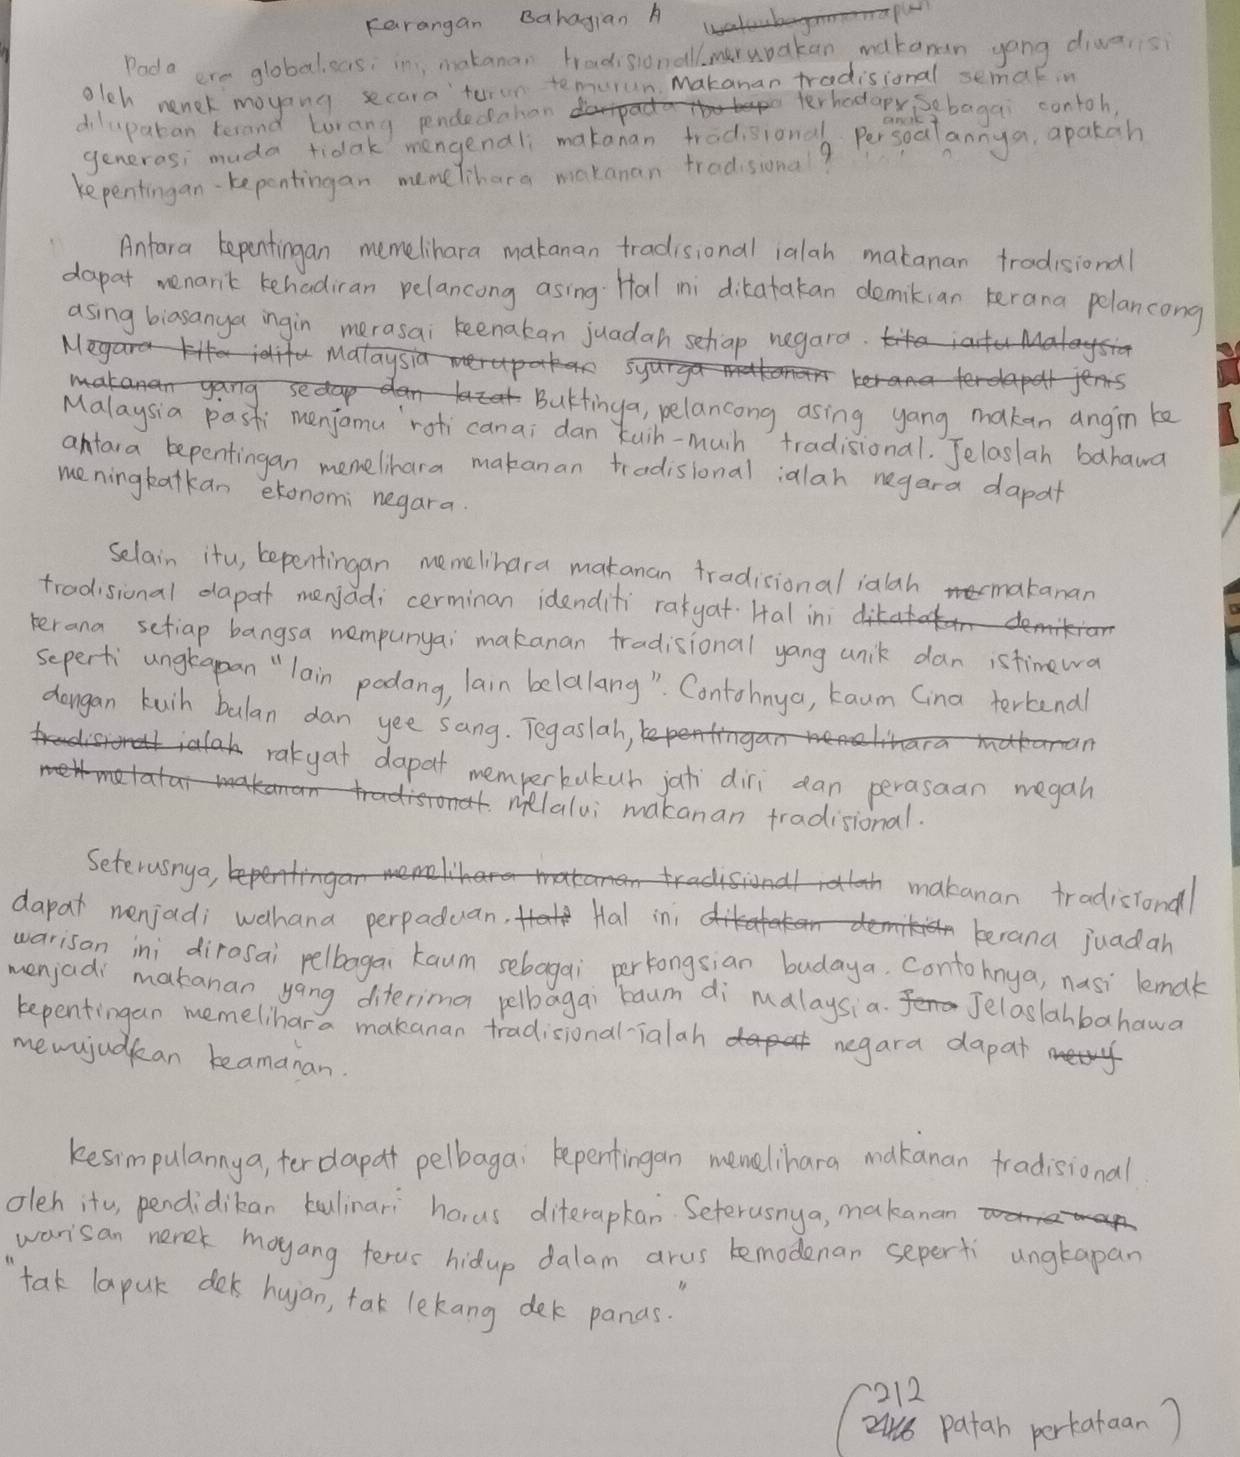 Karangan Bahagian A
Pada era globalisasi ini, makanan tradisional merupakan makanan yang diwarisi
oleh nenek moyang secara turun temurun. Makanan tradisional semakin
dilupakan kerana kurang pendedahan daripada ibu bapa terhadap anak². Sebagai contoh,
generasi muda tidak mengendali makanan tradisional. Persoalannya, apakah
kepentingan-kepentingan memelihara makanan tradisional?
Antara kepentingan memelihara makanan tradisional ialah makanan tradisional
dapat menarik kehadiran pelancong asing. Hal ini dikatakan demikian kerana pelancong
asing biasanya ingin merasai keenakan juadah setiap negara. kita iaitu Malaysia
Negara kita iaitu Malaysia merupakan syurga makanan kerana terdapat jenis
makanan yang sedap dan lazat Buktinya, pelancong asing yang makan angin ke
Malaysia pasti menjamu roti canai dan kuih-muih tradisional. Jelaslah bahawa
antara kepentingan memelihara makanan tradisional ialah negara dapat
meningkatkan ekonomi negara.
Selain itu, kepentingan memelihara makanan tradisional ialah mermakanan
tradisional dapat menjadi cerminan idenditi rakyat. Hal ini dikatakan demikian
kerana setiap bangsa mempunyai makanan tradisional yang unik dan istimewa
seperti ungkapan "lain padang, lain belalang". Contohnya, kaum Cina terkenal
dengan kuih bulan dan yee sang. Tegaslah, kepentingan memelihara makanan
tradisional ialah rakyat dapat memperkukuh jati diri dan perasaan megah
melalui makanan tradisional. melalui makanan tradisional.
Seterusnya, kepentingan memelihara makanan tradisional ialah makanan tradisional
dapat menjadi wahana perpaduan. Hal ini dikatakan demikian kerana juadah
warisan ini dirasai pelbagai kaum sebagai perkongsian budaya. Contohnya, nasi lemak
menjadi makanan yang diterima pelbagai kaum di Malaysia. Jelaslah bahawa
kepentingan memelihara makanan tradisional ialah dapat negara dapat
mewujudkan keamanan.
Kesimpulannya, terdapat pelbagai kepentingan memelihara makanan tradisional.
Oleh itu, pendidikan kulinari harus diterapkan. Seterusnya, makanan
warisan nenek moyang terus hidup dalam arus kemodenan seperti ungkapan
"tak lapuk dek hujan, tak lekang dek panas."
(212
patah perkataan)